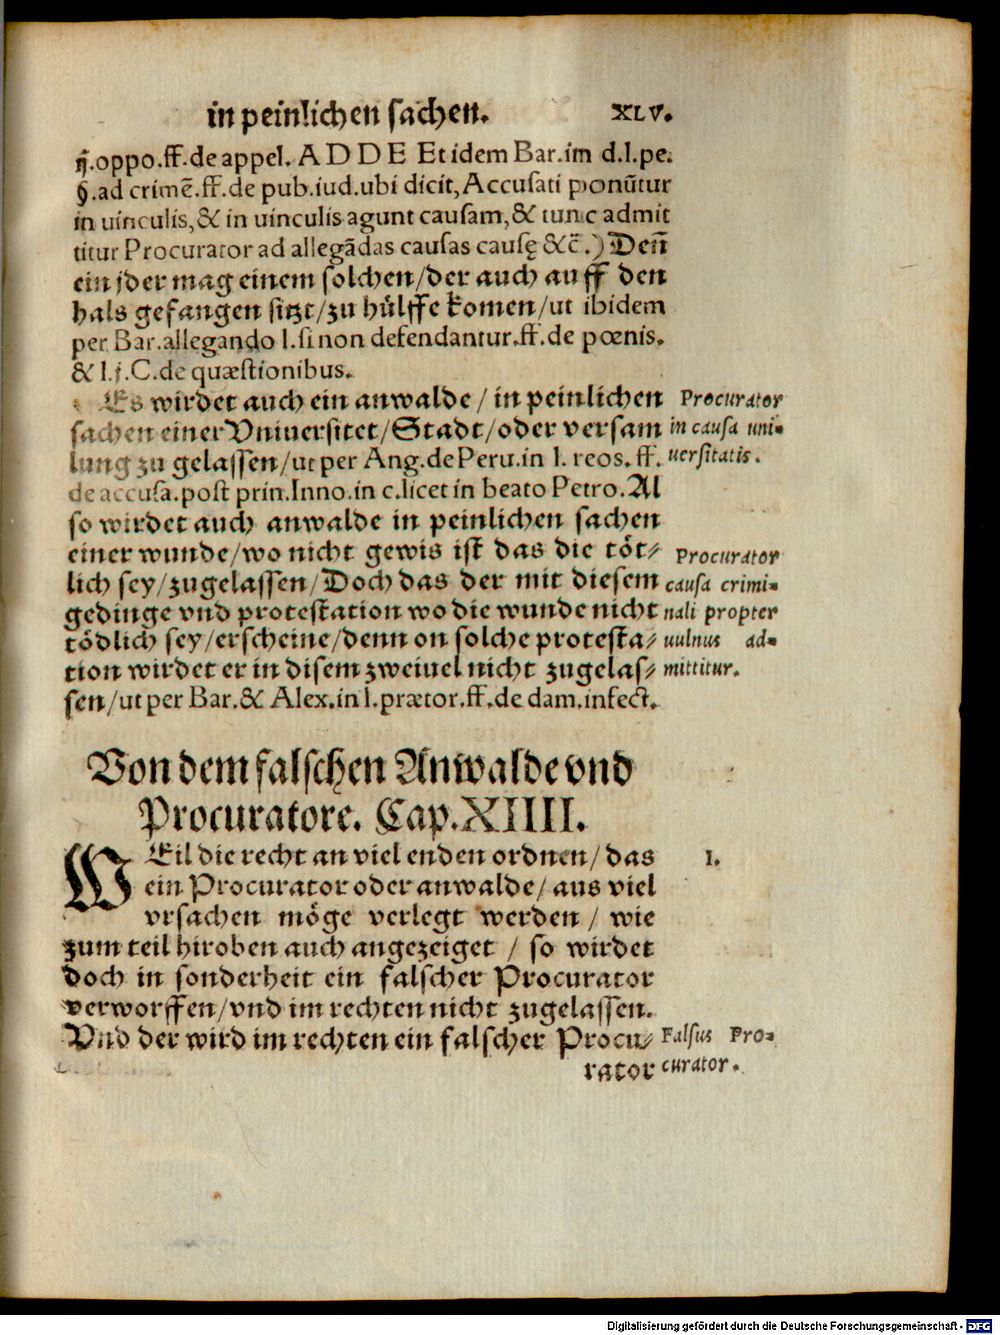 in peinlichen sachen. XLV.
q̃.oppo.ff.de appel. ADDE Et idem Bar.im d.l.pe.
§.ad crimẽ.ff.de pub.iud.ubi dicit, Accusati ponũtur
in uinculis, & in uinculis agunt causam, & tunc admit
titur Procurator ad allegãdas causas causę &c̃.) Deñ
ein jder mag einem solchen/der auch auff den
hals gefangen sitzt/zu hülffe komen/ut ibidem
per Bar.allegando l.si non defendantur.ff.de pœnis.
& l.j.C.de quæstionibus.
Es wirdet auch ein anwalde / in peinlichen
sachen einer Vniuersitet/Stadt/oder versam
lung zu gelassen/ut per Ang.de Peru.in l. reos. ff.
de accusa.post prin.Inno.in c.licet in beato Petro. Al
so wirdet auch anwalde in peinlichen sachen
einer wunde/wo nicht gewis ist das die töt⸗
lich sey/zugelassen/Doch das der mit diesem
gedinge vnd protestation wo die wunde nicht
tödlich sey/erscheine/denn on solche protesta⸗
tion wirdet er in disem zweiuel nicht zugelas⸗
sen/ut per Bar.& Alex.in l.prætor.ff.de dam.infect.
Procurator
in causa uni-
uersitatis.
Procurator
causa crimi-
nali propter
uulnus ad-
mittitur.
Von dem falschen Anwalde vnd
Procuratore. Cap.XIIII.
WEil die recht an viel enden ordnen/ das
ein Procurator oder anwalde/ aus viel
vrsachen möge verlegt werden / wie
zum teil hiroben auch angezeiget / so wirdet
doch in sonderheit ein falscher Procurator
verworffen/vnd im rechten nicht zugelassen.
Vnd der wird im rechten ein falscher Procu⸗
rator
I.
Falsus Pro-
curator.
Digitalisierung gefördert durch die Deutsche Forschungsgemeinschaft - DFG